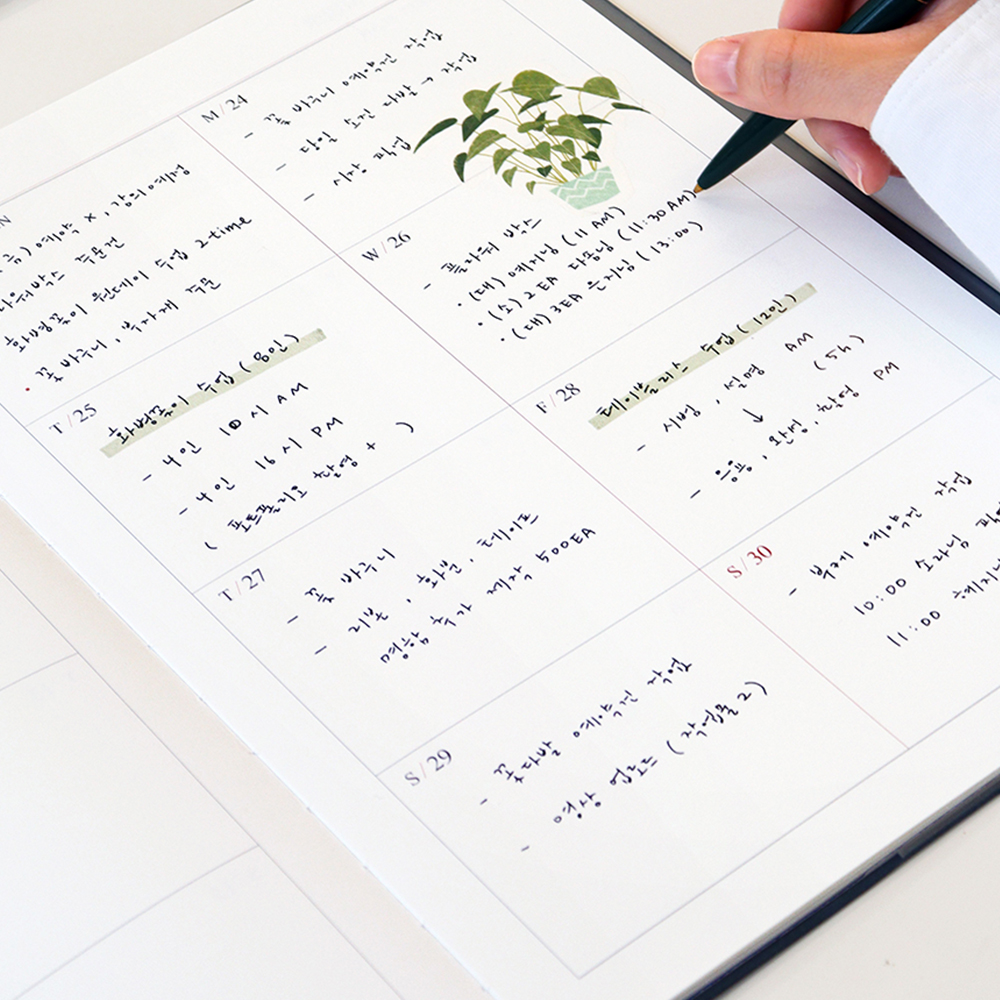 금) 예약 x, 강의예정
화병꽂이 원데이 수업 2-time
• 꽃바구니, 부자재 주문
M/24
- 꽃 바구니 예약건 작업
- 당일 주문 다발 → 작업
- 시장 픽업
T/25
화병꽂이 수업 (8인)
- 4인 10시 AM
- 4인 16시 PM
( 포트폴리오 촬영 + )
W/26
- 플라워 박스
• (대) 예지님 (11 AM)
• (소) 2EA 다름님 (11:30AM)
• (대) 3EA 은지님 (13:00)
T/27
- 꽃 바구니
- 리본, 화분, 테이프
명함 추가 제작 500EA
F/28
테이블 리스 수업 (12인)
- 시범, 설명 AM
↓ (5h)
- 응용, 완성, 촬영 PM
S/29
- 꽃다발 예약건 작업
- 영상 업로드 (작업물 2)
S/30
- 부케 예약건 작업
10:00 소라님
11:00